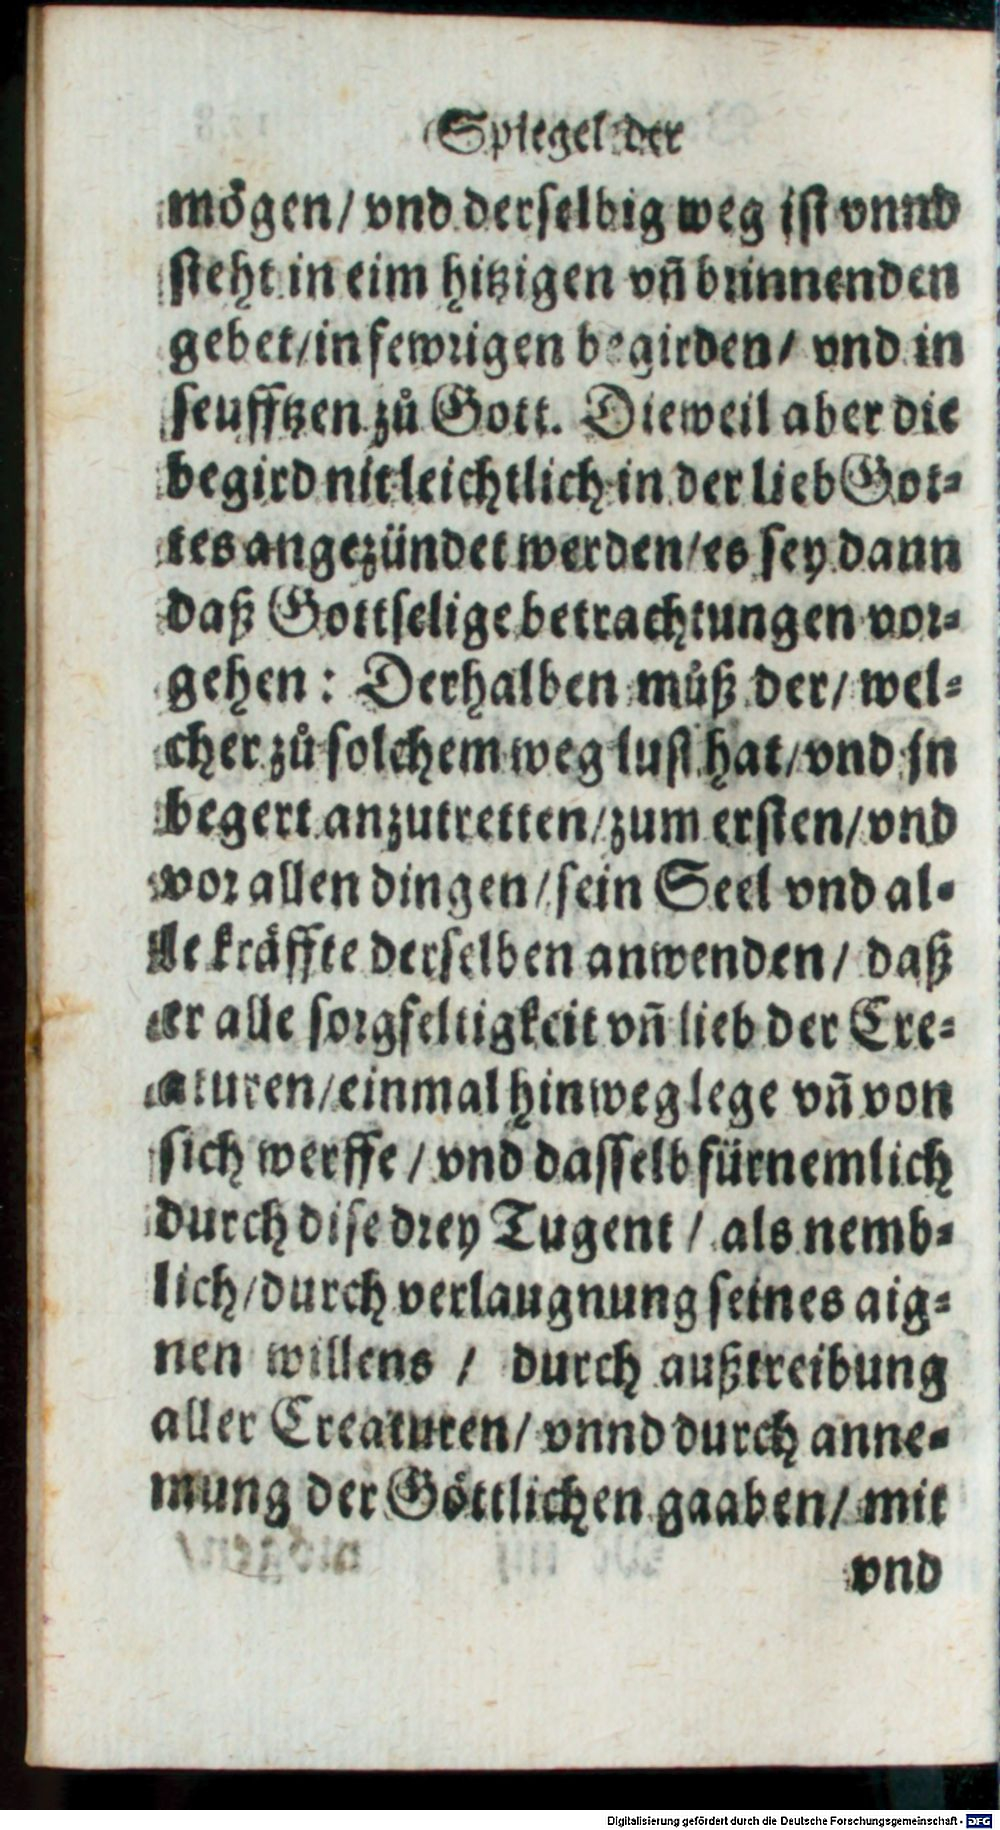 Spiegel der
mögen/ vnd derselbig weg ist vnnd
steht in eim hitzigen vñ brinnenden
gebet/ in fewrigen begirden/ vnd in
seufftzen zů Gott. Dieweil aber die
begird nit leichtlich in der lieb Got⸗
tes angezündet werden/ es sey dann
daß Gottselige betrachtungen vor⸗
gehen: Derhalben můß der/ wel⸗
cher zů solchem weg lust hat/ vnd jn
begert anzutretten/ zum ersten/ vnd
vor allen dingen/ sein Seel vnd al⸗
le kräffte derselben anwenden/ daß
er alle sorgfeltigkeit vñ lieb der Cre⸗
aturen/ einmal hinweg lege vñ von
sich werffe/ vnd dasselb fürnemlich
durch dise drey Tugent/ als nemb⸗
lich/ durch verlaugnung seines aig⸗
nen willens/ durch außtreibung
aller Creaturen/ vnnd durch anne⸗
mung der Göttlichen gaaben/ mit
vnd
Digitalisierung gefördert durch die Deutsche Forschungsgemeinschaft - DFG